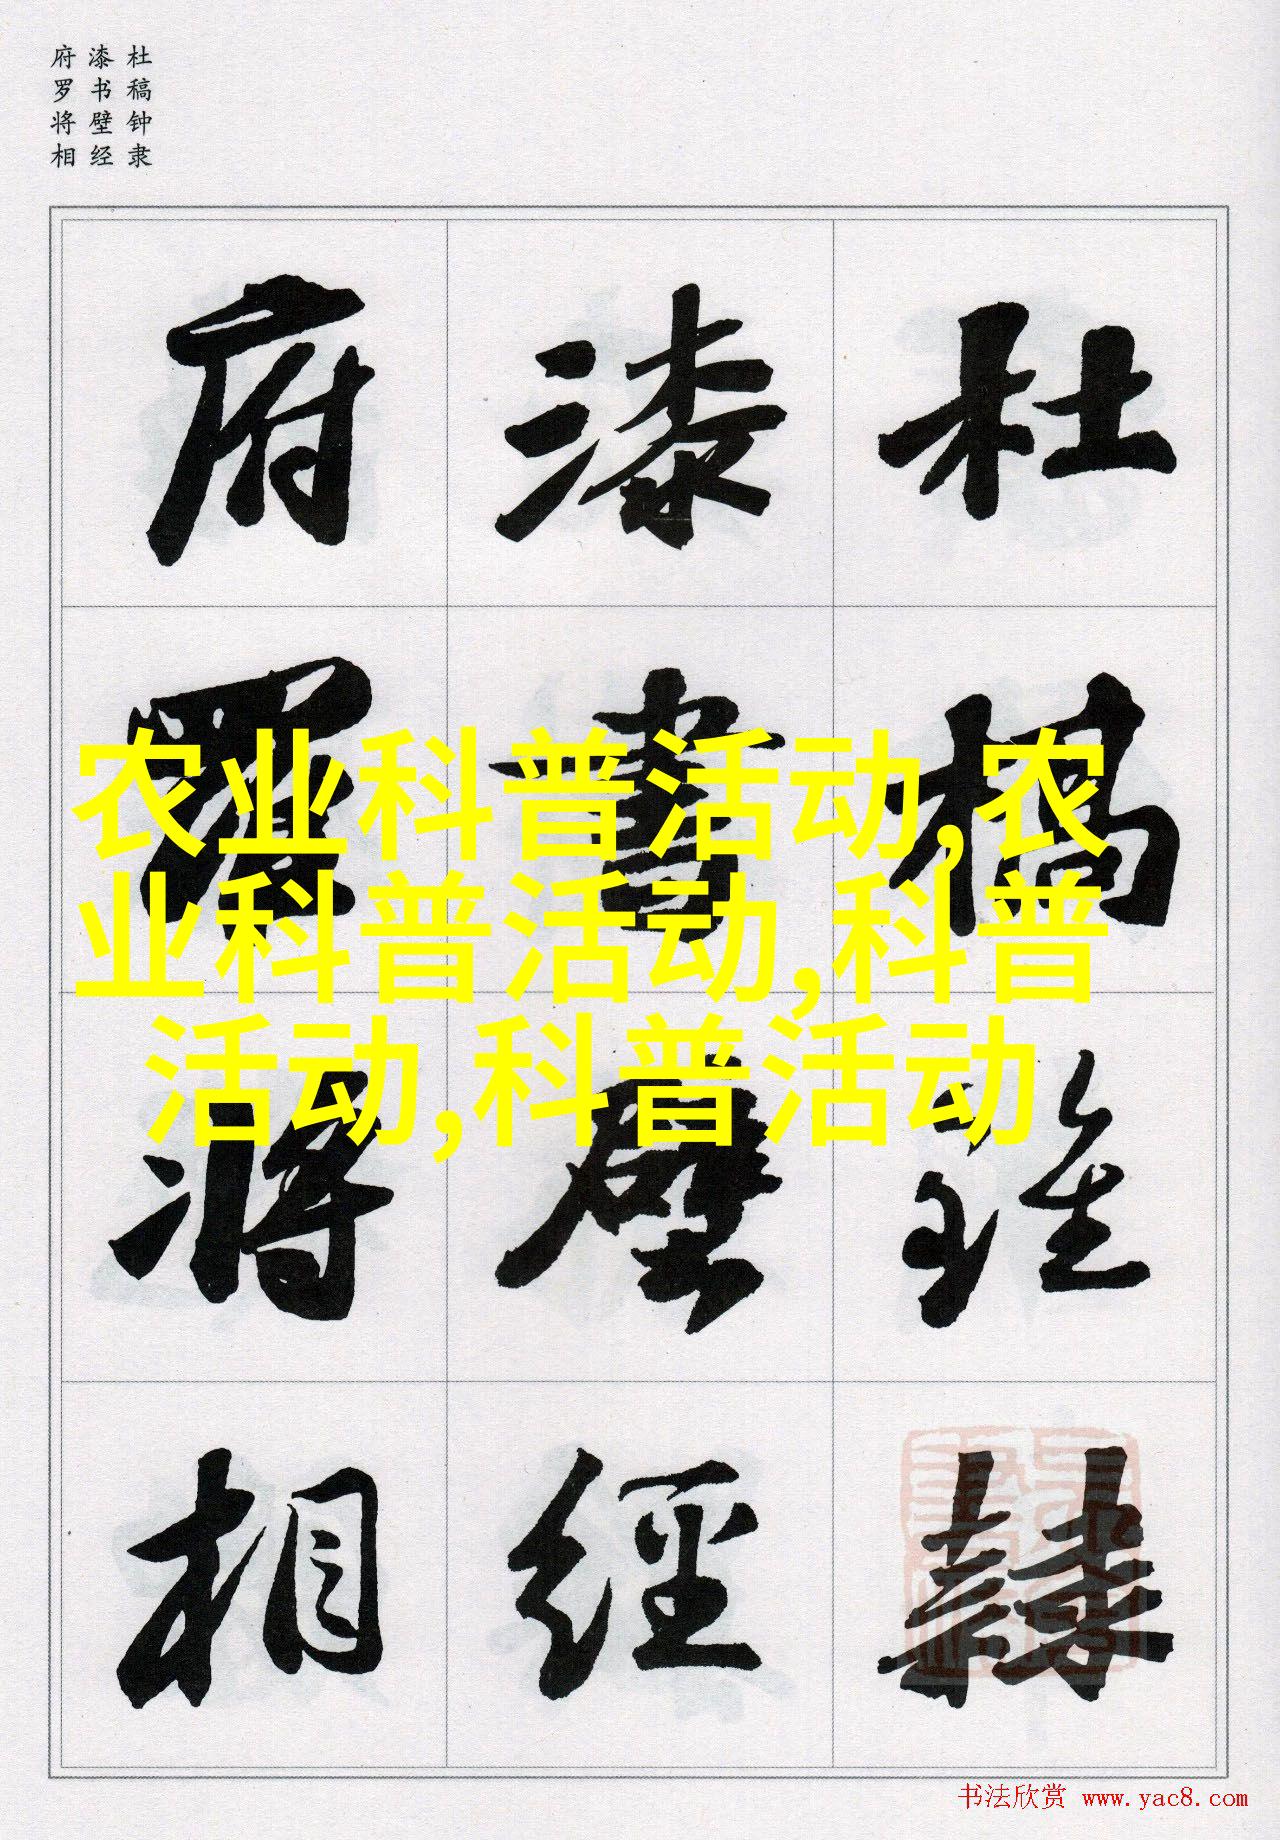 杜稿钟隶
漆书壁经
府罗将相
杜稿鍾隸
漆書壁經
府羅將相
农业科普活动,农
业科普活动,科普
活动,科普活动
书法欣赏 www.yac8.com